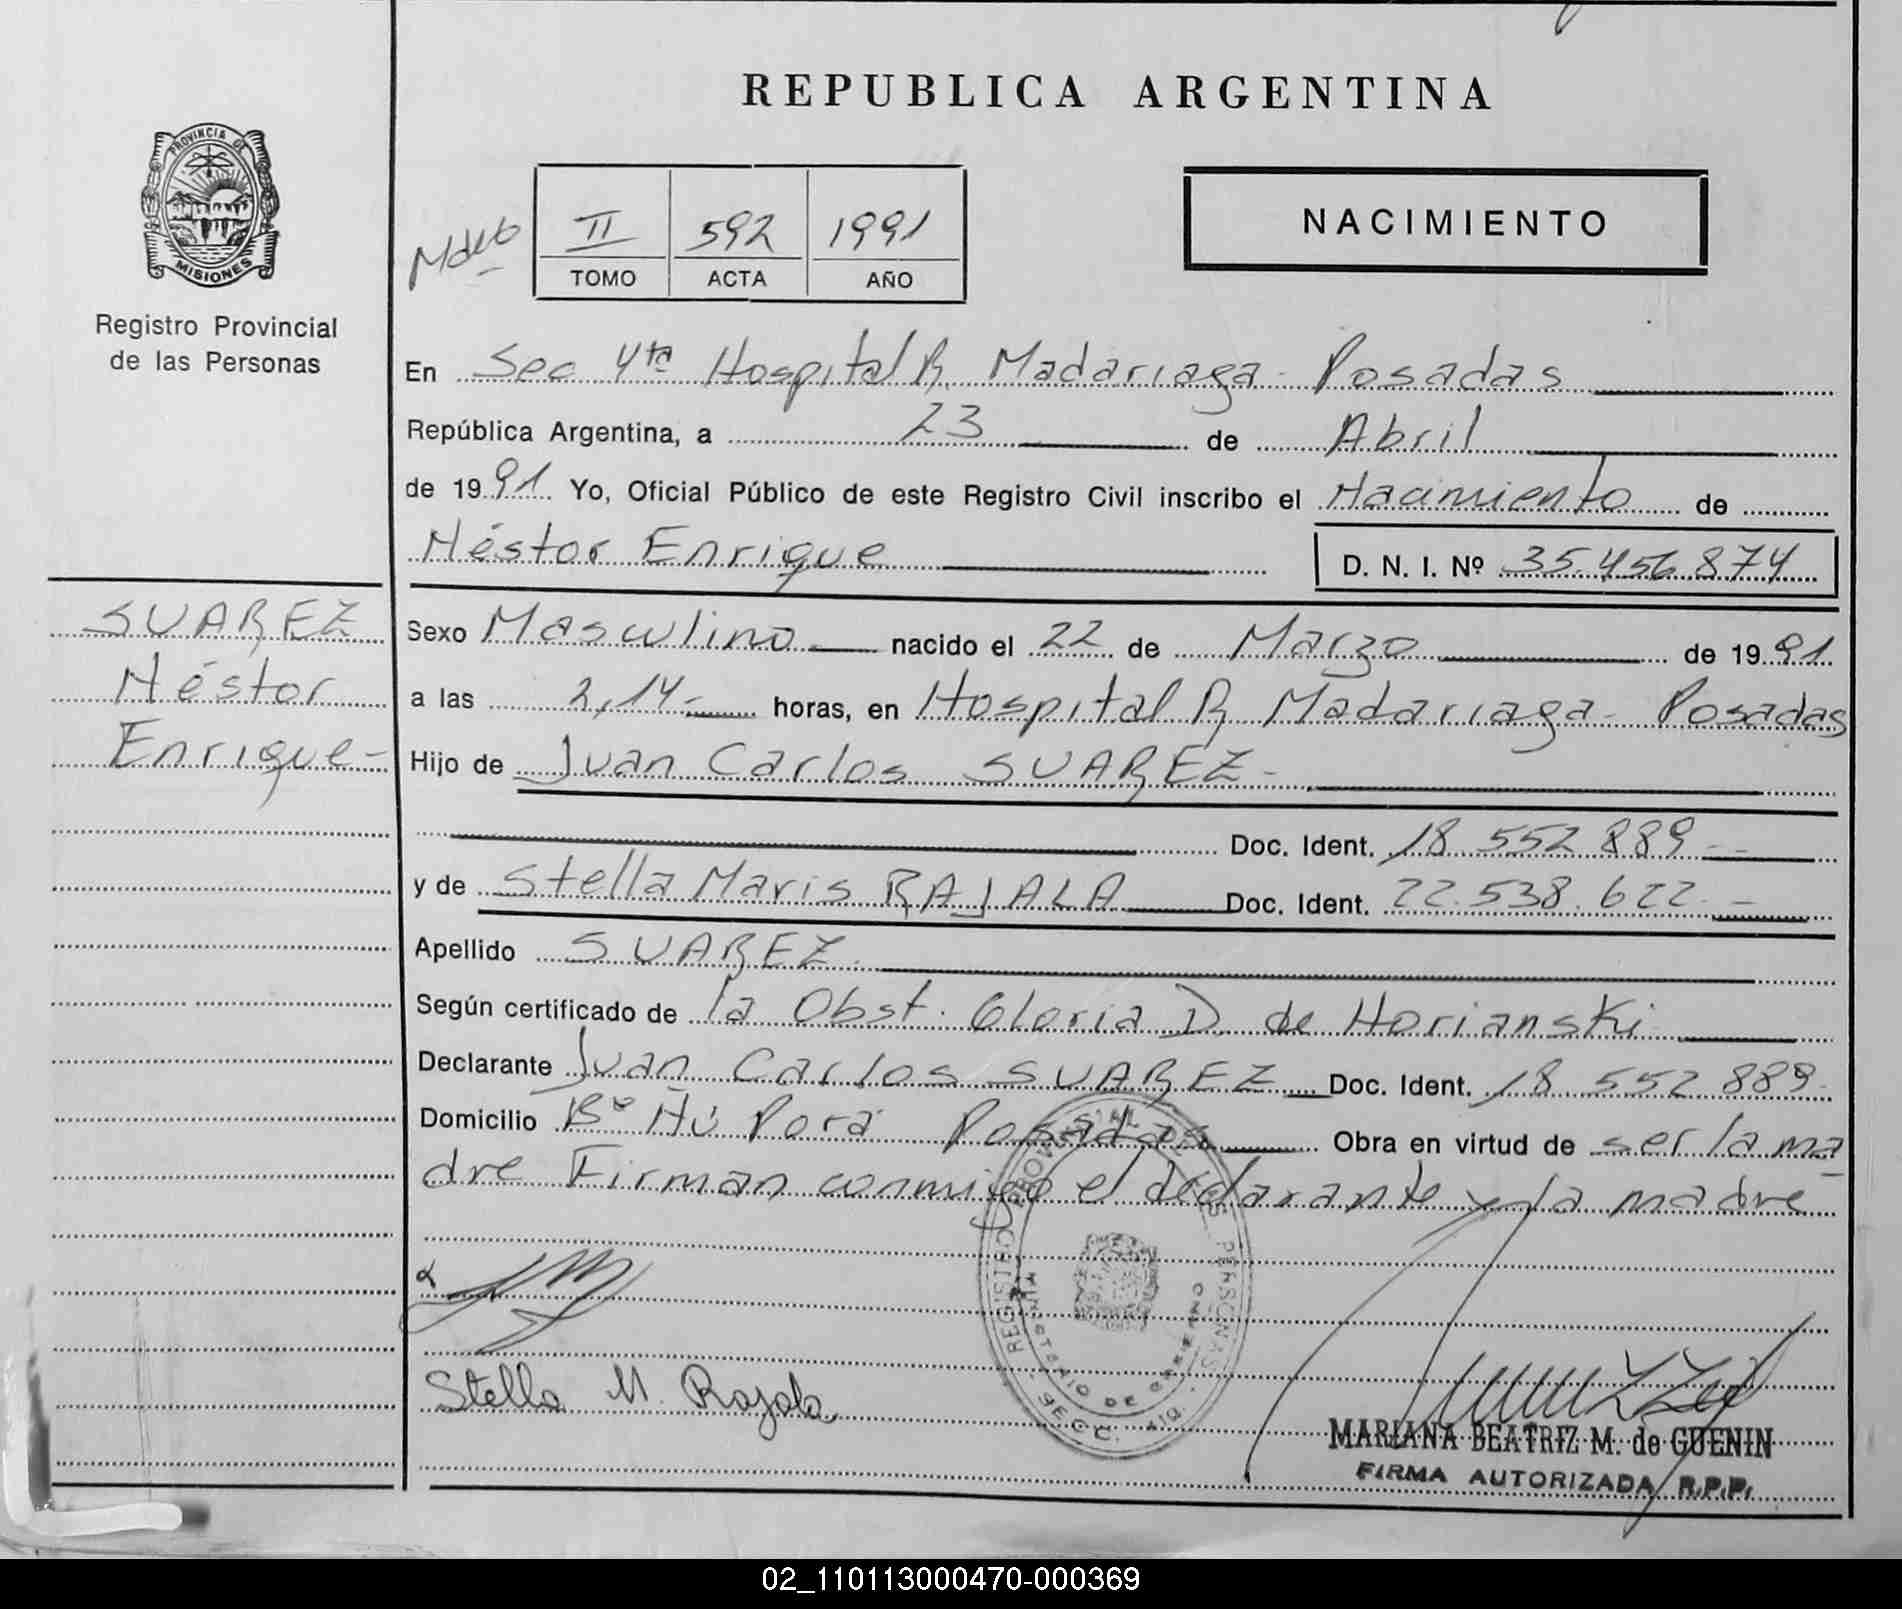 REPUBLICA ARGENTINA
PROVINCIA DE
MISIONES
Registro Provincial
de las Personas
II 592 1991
TOMO ACTA AÑO
NACIMIENTO
En Sec 4ta Hospital R. Madariaga - Posadas
República Argentina, a 23 de Abril
de 1991 Yo, Oficial Público de este Registro Civil inscribo el Nacimiento de
Néstor Enrique D. N. I. Nº 35.456.874
SUAREZ
Néstor
Enrique-
Sexo Masculino nacido el 22 de Marzo de 1991
a las 2,14- horas, en Hospital R Madariaga - Posadas
Hijo de Juan Carlos SUAREZ-
Doc. Ident. 18 552 889
y de Stella Maris RAJALA Doc. Ident. 22.538.622
Apellido SUAREZ
Según certificado de la Obst. Gloria D. de Horianski
Declarante Juan Carlos SUAREZ Doc. Ident. 18 552.889
Domicilio Bº Ñú Porá Posadas Obra en virtud de ser la ma
dre Firman conmigo el declarante y la madre
REGISTRO PROVINCIAL DE LAS PERSONAS
MINISTERIO DE GOBIERNO
SECC. 4ta
Stella M. Rajala
MARIANA BEATRIZ M. de GUENIN
FIRMA AUTORIZADA R.P.P.
02_110113000470-000369